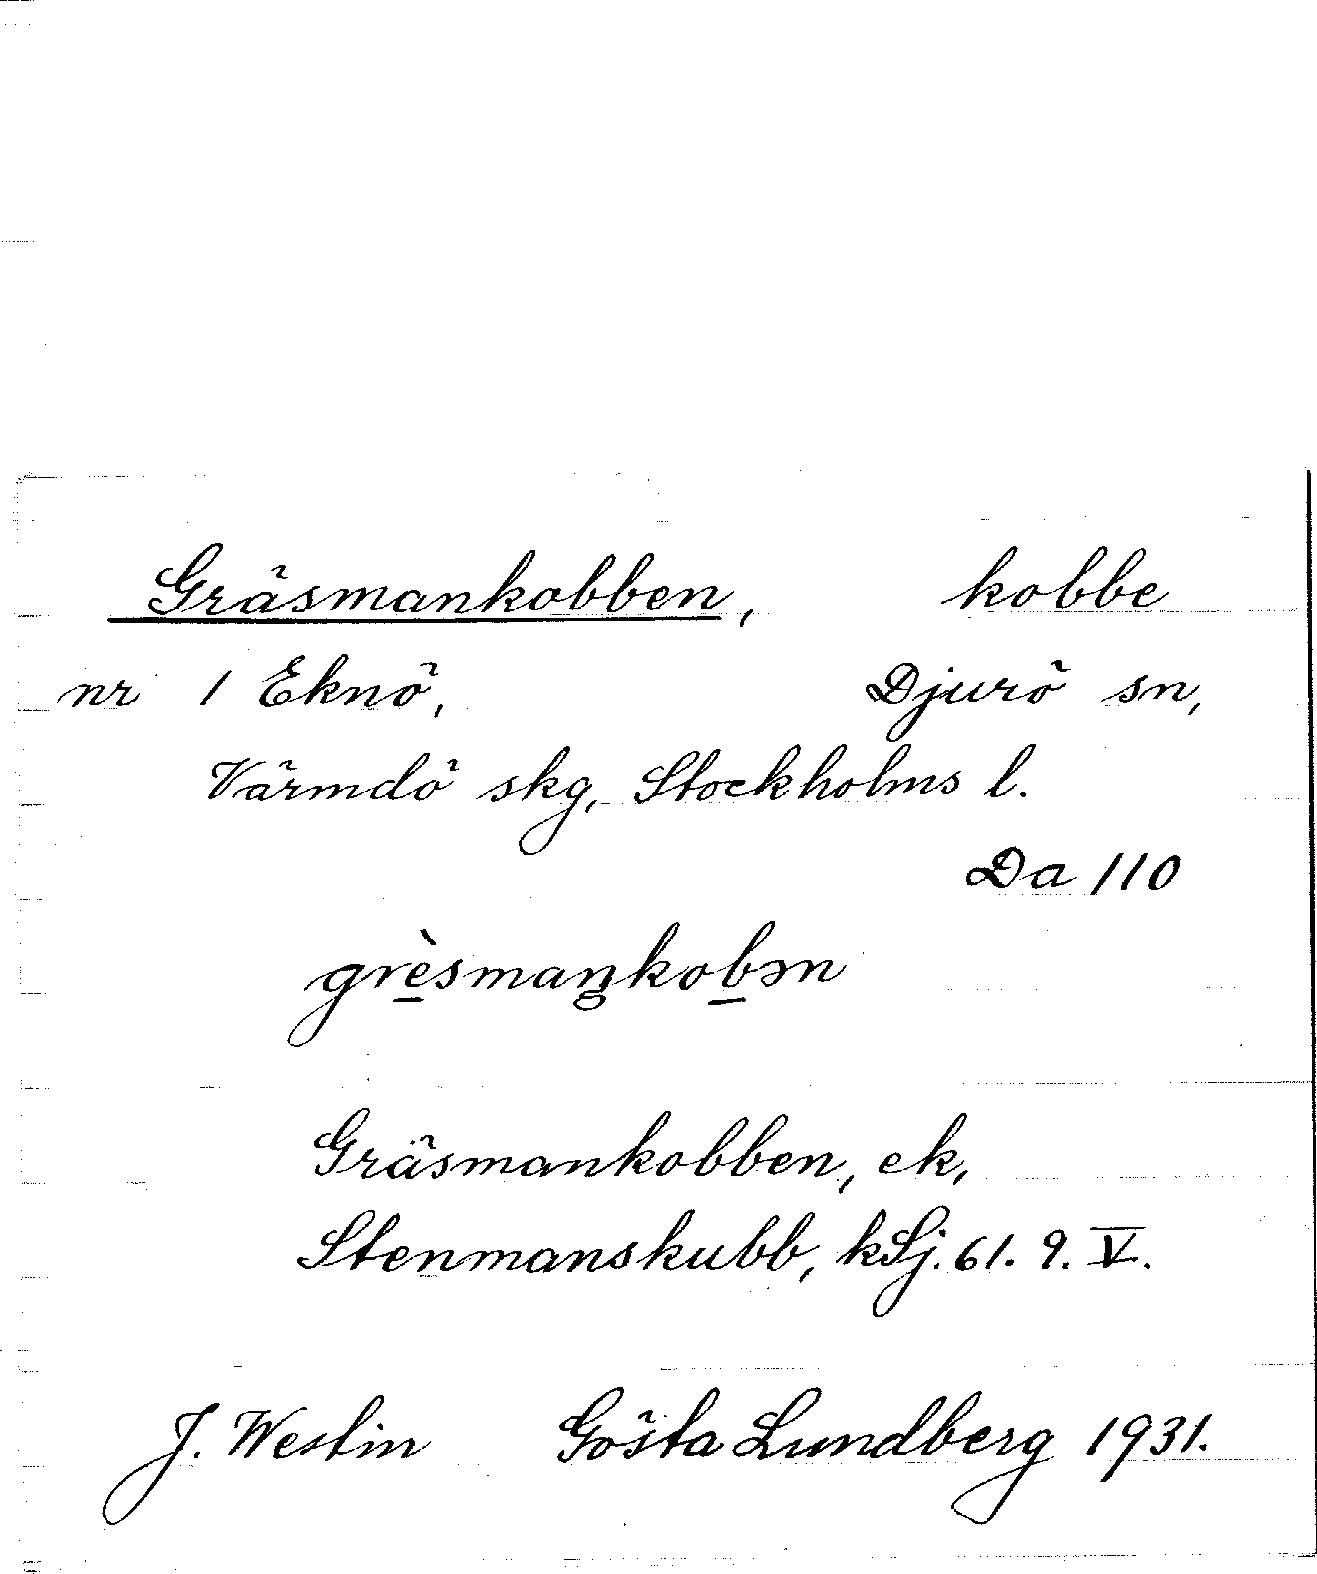 Gräsmankobben, kobbe
nr 1 Eknö, Djurö sn,
Värmdö skg, Stockholms l.
Da 110
grè̱smaŋkoḇən
Gräsmankobben, ek,
Stenmanskubb, kSj. 61. 9. V.
J. Westin Gösta Lundberg 1931.